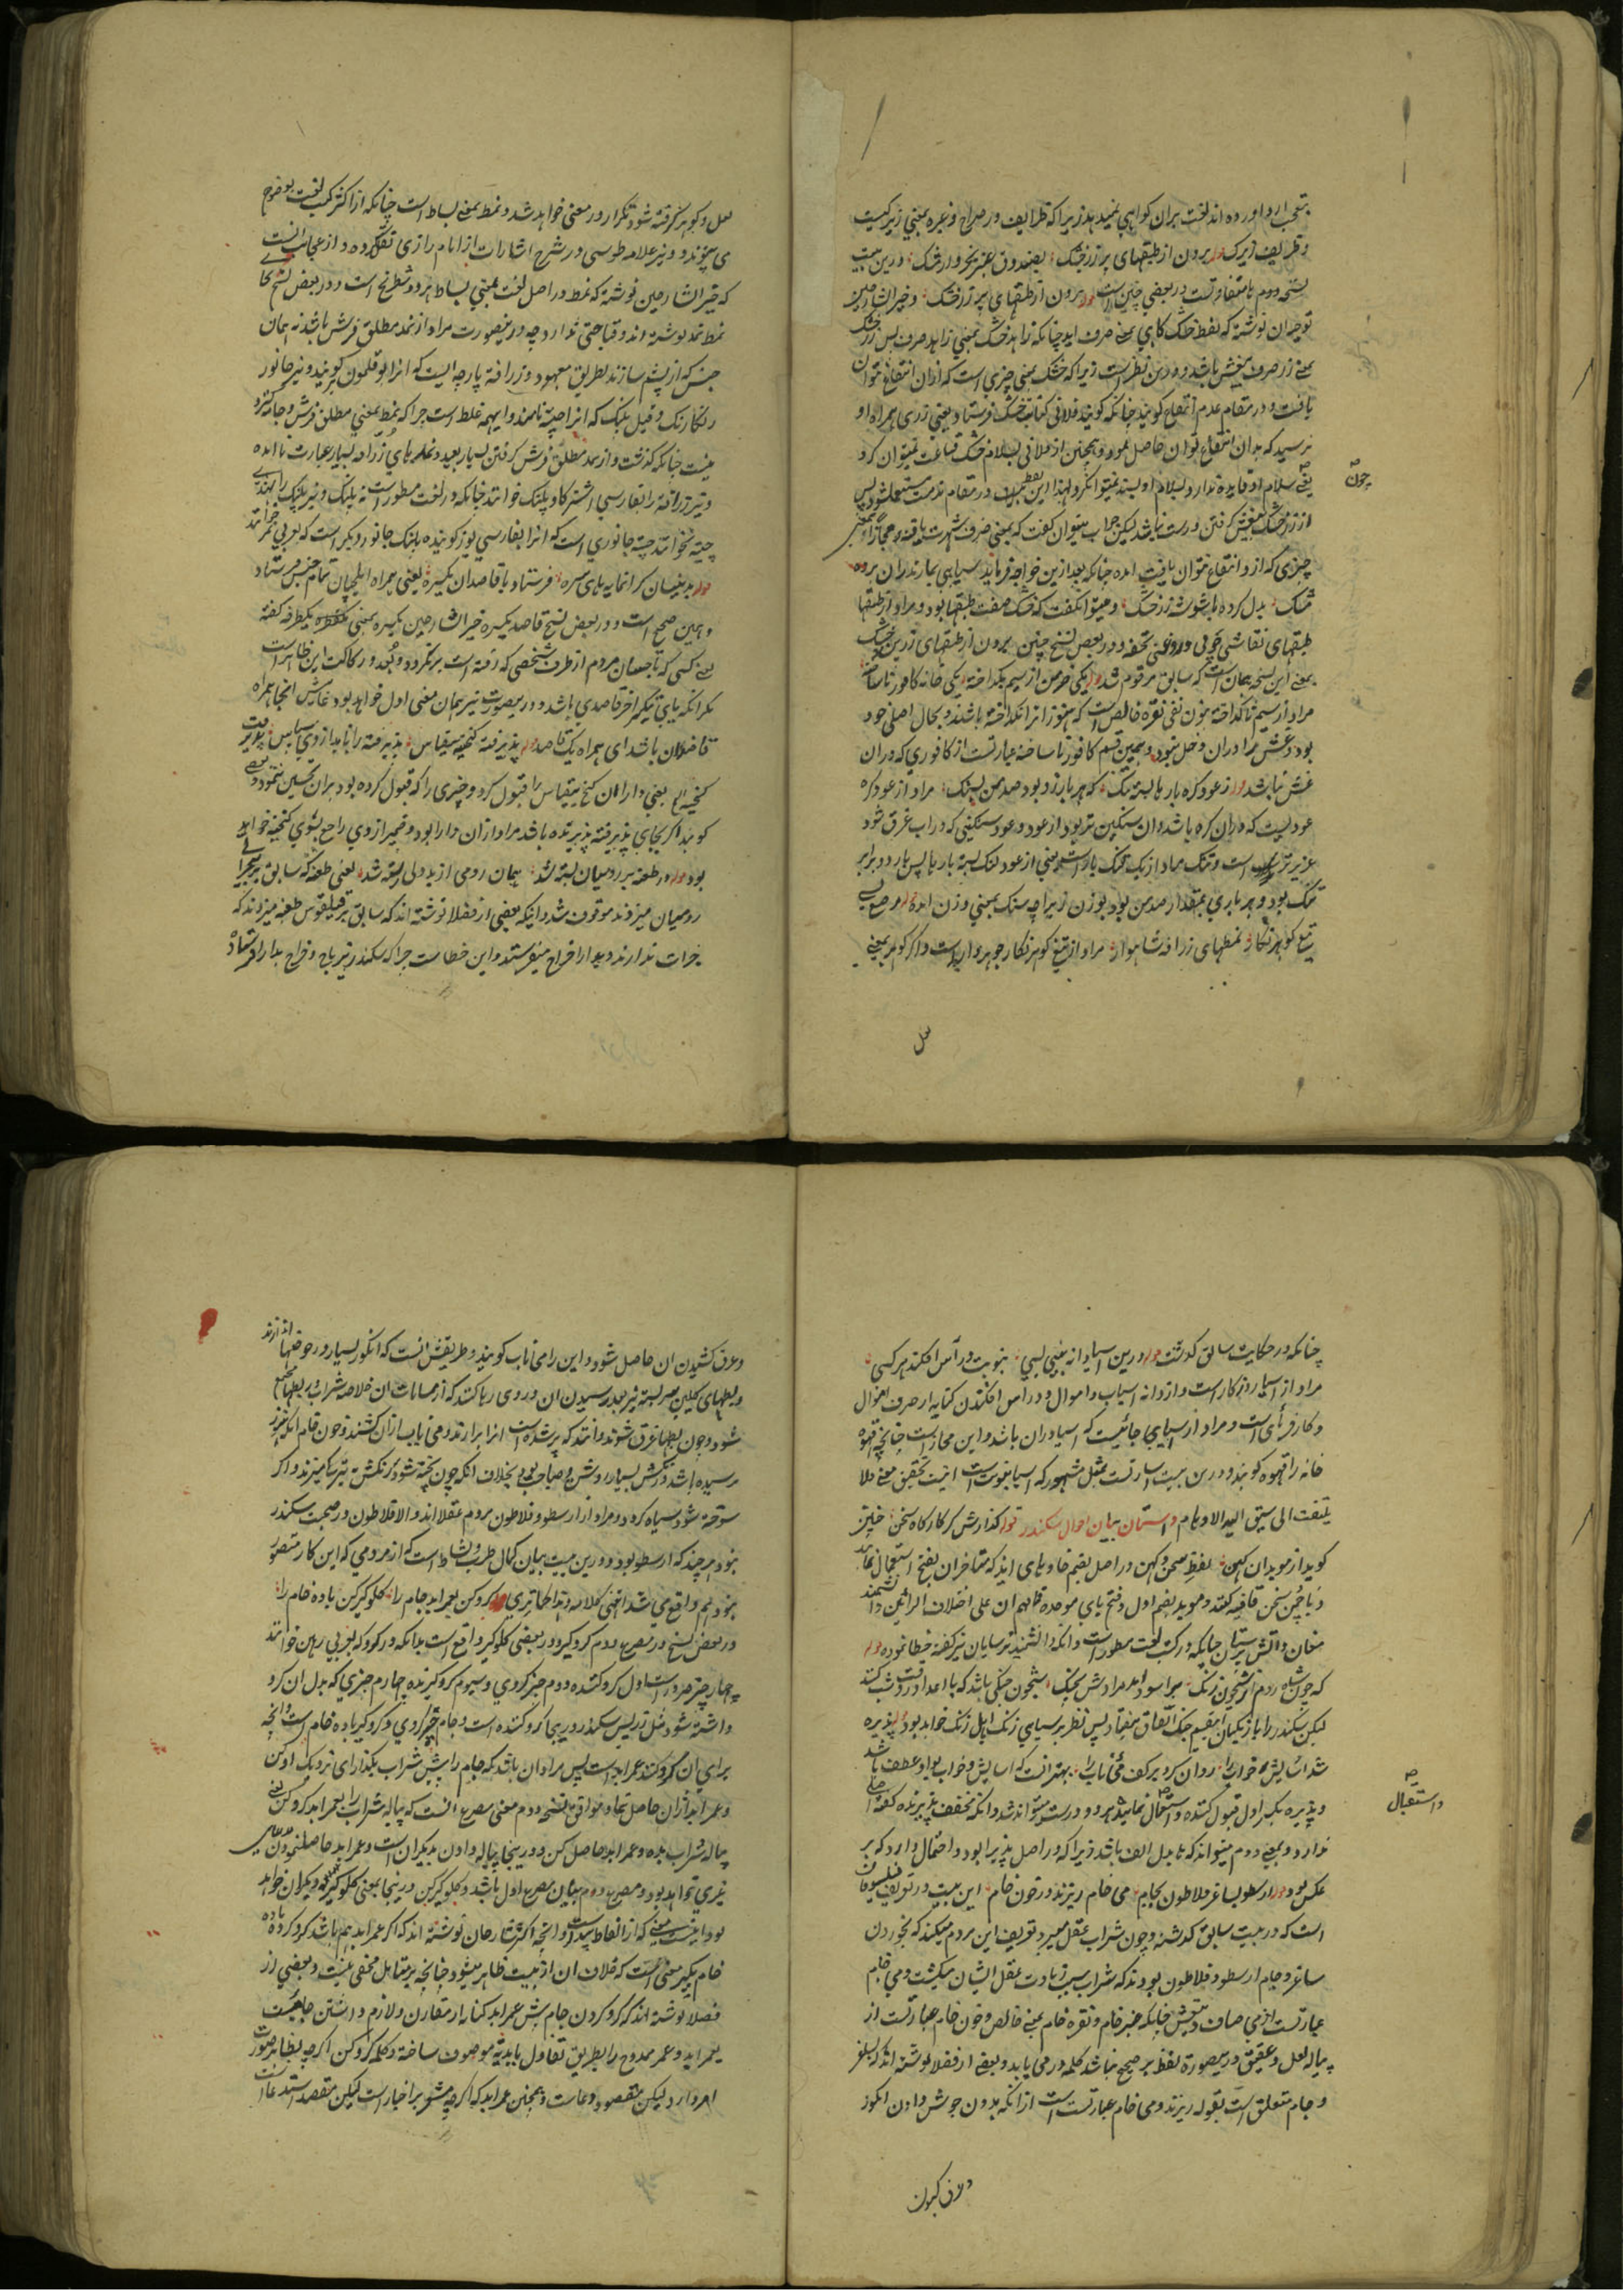 بتعجب ارد اورده اند لغت بران کواهی نمیدهد زیرا که ظرایف در صراح و غیره بمعنی زیرکیست
و ظریف زیرک قوله برون از طبقهای پر زر خشک بصندوق عنبر بخروار مشک درین بیت
نسخه دوم نامتفاوتست در بعضی چنین است قوله برون از طبقهای پر زر خشک و خیر الشارحین
توجیه ان نوشته که لفظ خشک کاهی بمعنی صرف اید چنانکه زاهد خشک بمعنی زاهد صرف پس زر خشک
بمعنی زر صرف بیغش باشد و درین نظر است زیرا که خشک بمعنی چیزی است که از ان انتفاع نتوان
یافت و در مقام عدم انتفاع کویند چنانکه کویند فلانی کتابت خشک فرستاد یعنی زری همراه او
نرسید که بدان انتفاع توان حاصل نمود و همچنین از فلانی بسلام خشک قناعت نمیتوان کرد
یعنی سلام او فایده ندارد و بسلام او بسند نمیتوان کرد و لهذا این لفظ در مقام مذمت مستعمل شود پس
چون
از زر خشک بیغش کرفتن درست نباشد لیکن جواب میتوان کفت که بمعنی صرف شهرت یافته و مجازا بمعنی
چیزی که از و انتفاع نتوان یافت امده چنانکه بعد ازین خواجه فرماید سپاهی نمارندران برده
خشک بدل کرده با پوشته زر خشک و میتوان کفت که خشک صفت طبقها بود و مراد از طبقها
طبقهای نقاشی چوبی و روغنی تحفه و در بعض نسخ چنین برون از طبقهای زرین خشک
بمعنی این نسخه همان است که سابق مرقوم شد قوله یکی خرمن از سیم بکداخته یکی خانه کافور ناساخته
مراد از سیم ناکداخته بنون نفی نقره خالص است که هنوز انرا نکداخته باشند و بحال اصلی خود
بود و غش را دران دخل نبود و همچنین قسم کافور ناساخته عبارتست از کافوری که دران
غش نباشد قوله ز عود کره بارها بسته تنک که هر بار زو بود صد من بسنک مراد از عود کره
عودیست که دران کره باشد و ان سنکین تر بود از عود و عود سنکینی که در اب غرق شود
عزیز تر است و تنک مراد از یک تنک بار است یعنی از عود تنک بسته بارها پس بار دو برابر
تنک بود و هر باری بمقدار صد من بود بوزن زیرا چه سنک بمعنی وزن امده قوله مرصع بسی
تیغ کوهر نکار نمطهای زرافه شاهوار مراد از تیغ کوهر نکار جوهر دار است و اکر کوهر بمعنی
لعل
لعل و کوهر کرفته شود تکرار در معنی خواهد شد و نمط بمعنی بساط است چنانکه از اکثر کتب لغت بوضوح
می پیوندد و نیز علامه طوسی در شرح اشارات از امام رازی نقل کرده و از عجایب انست
که خیر الشارحین نوشته که نمط در اصل لغت بمعنی بساط نرد و شطرنج است و در بعض نسخ کا
نمط نمد نوشته اند و قباحتی ندارد چه درینصورت مراد از نمد مطلق فرش باشد نه همان
جنس که از پشم سازند بطریق معهود و زرافه پارچه ایست که انرا بوقلمون کویند و نیز جانور
رنکارنک و قیل پلنک که انرا چیته نامند و اینهمه غلط است چرا که نمط بمعنی مطلق فرش و جامه کنرو
نیست چنانکه کذشت و از نمد مطلق فرش کرفتن بسیار بعید و نمطهای زرافه بسیار عبارت نا امده
و نیز زرافه را بفارسی اشتر کاو پلنک خوانند چنانکه در لغت مسطور است نه پلنک و نیز پلنک را بهندی
چیته نخوانند چیته جانوری است که انرا بفارسی یوز کویند و پلنک جانور دیکر است که بعربی نمر خوانند
قوله بدینسان کرانمایه های سره فرستاد با قاصدان یکسره یعنی همراه ایلچیان تمام جنس فرستاد
و همین صحیح است و در بعض نسخ قاصد یکسره خیر الشارحین یکسره بمعنی یکطرفه کفته
یعنی کسی که تا جهان مردم از طرف شخصی که رفته است برنکردد و بعد و رکاکت این ظاهر است
مکر انکه یای تنکیر اخر قاصدی باشد و درینصورت نیز همان معنی اول خواهد بود غایتش انجا همراه
قاصدان باشد ای همراه یک قاصد قوله پذیرفته کنجینه بیقیاس پذیرفته را نامد از وی سپاس پذیرفت
کنجینه الخ یعنی دارا ان کنج بیقیاس را قبول کرد و چیزی را که قبول کرده بود بران تحسین ننمود و بعضی
کویند اکر بجای پذیرفته پذیرنده باشد مراد ازان دارا بود و ضمیر از وی راجع بسوی کنجینه خواهد
بود قوله در طعنه بر رومیان بسته شد همان رومی از بد دلی رسته شد یعنی طعنه که سابق بر بجبرانی
رومیان میزدند موقوف شد و اینکه بعضی از فضلا نوشته اند که سابق بر فیلقوس طعنه میزدند که
جرات ندارند و بدارا خراج میفرستند و این خطاست چرا که سکندر نیز باج و خراج بدارا فرستاده
چنانکه در حکایت سابق کذشت قوله درین اسیا دانه بینی بسی بنوبت در آس افکند هر کسی
مراد از اسیا روزکار است و از دانه اسباب و اموال و در اس افکندن کنایه از صرف اموال
و کارفرمائی است و مراد از اسیا بی جائیست که اسیا دران باشد و این مجاز است چنانچه قهوه
خانه را قهوه کویند و درین بیت اشارتست بمثل مشهور که اسیا بنوبت است انیست تحقیق معنی ولا
یلتفت الی سبق الیه الاوهام داستان بیان احوال سکندر قوله کذارش کر کارکاه سخن چنین
کوید از موبدان کهن لفظ سخن و کهن در اصل بضم خا و های اند که متاخران بفتح استعمال نمایند
و با چمن سخن قافیه کفته و موبد بضم اول و فتح بای موحده قافهم ان علی اختلاف الرائین دانشمند
مغان و اتش پرستان چنانکه در کتب لغت مسطور است و انکه دانشمند ترسایان نیز کفته خطا نموده قوله
که چون شاه روم از شبخون زنک براسود امد مرادش بچنک شبخون جنکی باشد که با اعدا در وقت شب کنند
لیکن سکندر را با زنکیان اینقسم جنک اتفاق نیفتاد پس نظر بر سیاهی زنک اهل زنک خواهد بود قوله پذیره
شد اسایش و خواب را روان کرد بر کف می ناب را بهتر انست که اسایش و خواب بواو عطف باشد
و پذیره بکسر اول قبول کننده و استقبال نمایند هر دو درست میتواند شد و انکه مخفف پذیرنده کفته اصلی
واستقبال
ندارد و بمعنی دوم میتواند که ها بدل الف باشد زیرا که در اصل پذیرا بود و احتمال دارد که بر
عکس بود قوله ارسطو بساغر فلاطون بجام می خام ریزند در خون خام این بیت در تعریف فیلسوفان
است که در بیت سابق کذشته و چون شراب عقل میبرد تعریف این مردم میکند که بخوردن
ساغر و جام ارسطو و فلاطون بودند که شراب سبب زیادت عقل ایشان میکشت و می خام
عبارتست از می صاف و بیغش چنانکه عنبر خام و نقره خام بمعنی خالص و خون خام عبارتست از
پیاله لعل و عقیق درینصورت لفظ بر صحیح نباشد کلمه در می باید و بعضی از فضلا نوشته اند که بساغر
و جام متعلق است بقوله ریزند و می خام عبارتست است از انکه بدون جوش دادن انکور
و عرق کشیدن
و عرق کشیدن ان حاصل شود و این را می ناب کویند و طریقش انست که انکور بسیار در حوضها اندازند
و بطهای کلین سر بسته نیز بعد رسیدن ان در وی رها کنند که از مسامات ان خلاصه شراب در بطها جمع
شود و چون بطها غرق شوند دانند که پر شده است انرا برارند و می ناب ازان کشند و خون خام انکه نیز
نرسیده باشد رنکش بسیار روشن و صباحی بود بخلاف انکه چون پخته شود رنکش تیره میزند و اکر
سوخته شود سیاه کردد و مراد از ارسطو و فلاطون مردم عقلا اند و الا فلاطون در صحبت سکندر
نبود هر چند که ارسطو بود و درین بیت بیان کمال طرب و نشاط است که از مردمی که این کار متصور
نبود هم واقع می شد انتهی کلامه و هذا کما تری قوله کرو کن بعمر ابد جام را کلوکیر کن باده خام را
و در بعض نسخ در مصرع دوم کرو کیر و در بعضی کلو کیر واقع است بدانکه در کرو که بعربی رهن خوانند
چهار چیز ضرور است اول کرو کننده و دوم چیز کروی و سیوم کرو کیرنده چهارم چیزی که بدل ان کرو
داشته شود مثل زر پس سکندر در پنجا کرو کننده است و جام چیز کروی و کرو کیر باده خام است و انچه
برای ان کرو کند عمر ابد است پس مراد ان باشد که جام را پیش شراب بکذار ای نزدیک او کن
و عمر ابد ازان حاصل نما و موافق نسخه دوم معنی مصرع انست که پیاله شراب را بعمر ابد کرو کن یعنی
پیاله شراب بده و عمر ابد حاصل کن و درینجا پیاله دادن بدیکران است و عمر ابد حاصل نمودن دعای
خیری خواهد بود و مصرع دوم بیان مصرع اول باشد و کلوکیر کن درینجا بمعنی کلوکیر خود و دیکران خواهد
بود اینست معنی که از الفاظ پیداست و انچه اکثر شارحان نوشته اند که اکر عمر ابد هم باشد کرو کرده باده
خام بکیر معنی انست که خلاف ان از بیت ظاهر میشود چنانچه بر متامل مخفی نیست و بعضی از
فضلا نوشته اند که کرو کردن جام پیش عمر ابد کنایه از مقارن و لازم داشتن جامیست
بعمر ابد و عمر ممدوح را بطریق تفاول بابدیة موصوف ساخته و کلمه کرو کن اکرچه بظاهر صورت
امر دارد لیکن مقصود دعاست و همچنین عمر ابد که اکرچه مشعر بر اخبار است لیکن مقصد استدعا است